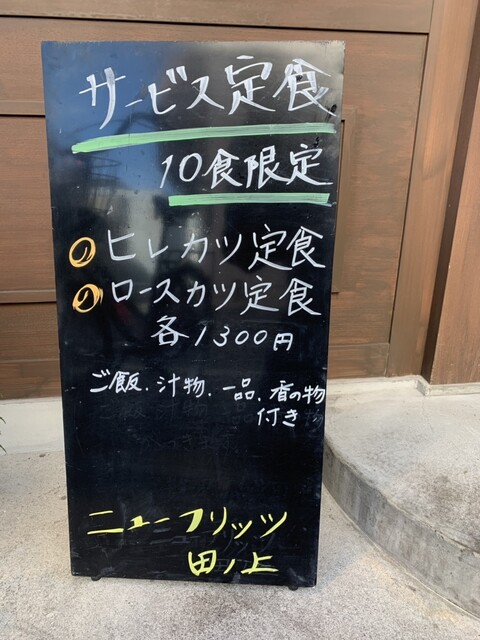 サービス定食
10食限定
ヒレカツ定食
ロースカツ定食
各1300円
ご飯、汁物、一品、香の物
付き
ニューフリッツ
田ノ上